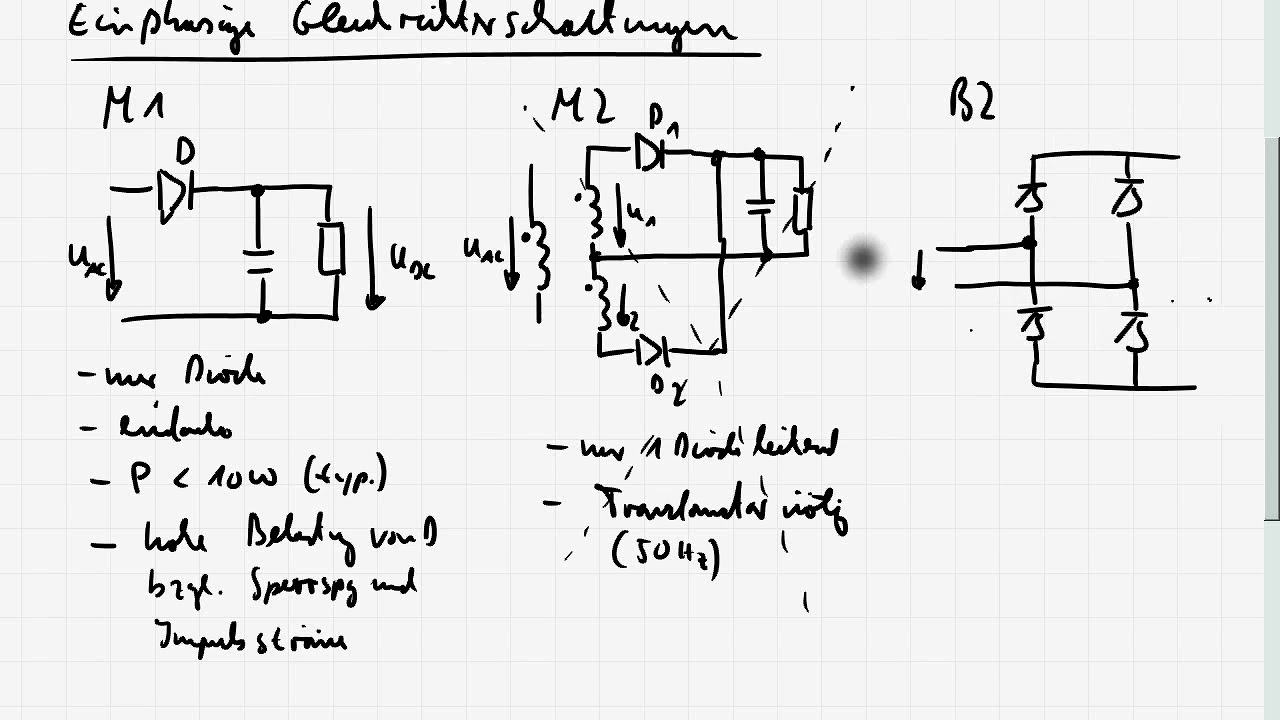 Einphasige Gleichrichterschaltungen
M1
D
u_AC
u_DC
- nur Diode
- einfach
- P < 10W (typ.)
- hohe Belastung von D
bzgl. Sperrspg und
Impulsströme
M2
D1
u_AC
u_1
2
D2
- nur 1 Diode leitend
- Transformator nötig
(50Hz)
B2